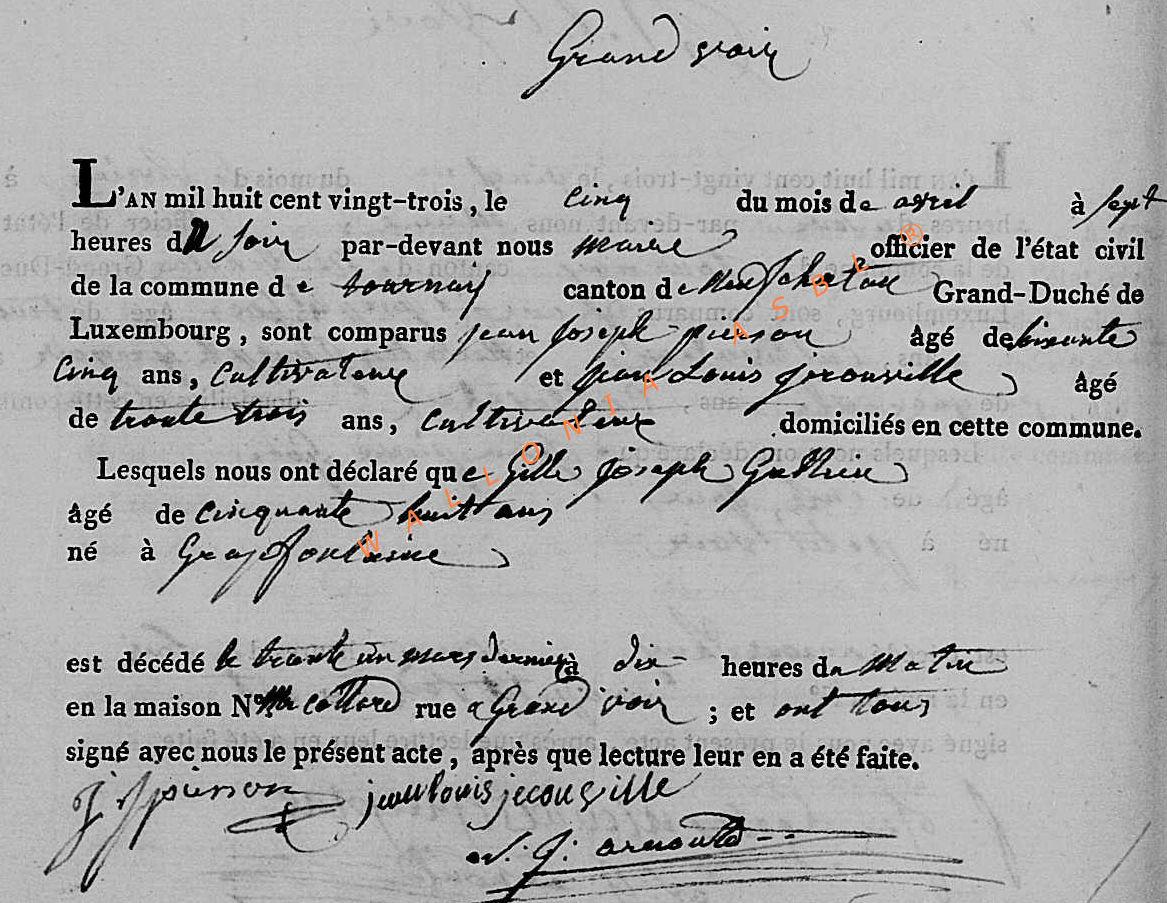 Grand voir
L'AN mil huit cent vingt-trois, le cinq du mois de avril à sept
heures du soir par-devant nous maire officier de l'état civil
de la commune de tournay canton de Neufchateau Grand-Duché de
Luxembourg, sont comparus jean joseph pierson âgé de soixante
cinq ans, cultivateur et jean Louis jerouville âgé
de trente trois ans, cultivateur domiciliés en cette commune.
Lesquels nous ont déclaré que Gille joseph Guthin
âgé de cinquante huit ans
né à Grapfontaine
est décédé le trente un mars dernier à dix heures du matin
en la maison N° rue a Grand voir ; et ont tous
signé avec nous le présent acte, après que lecture leur en a été faite.
j j pierson jean louis jerouville
j. arnould
WALLONIA ASBL ®